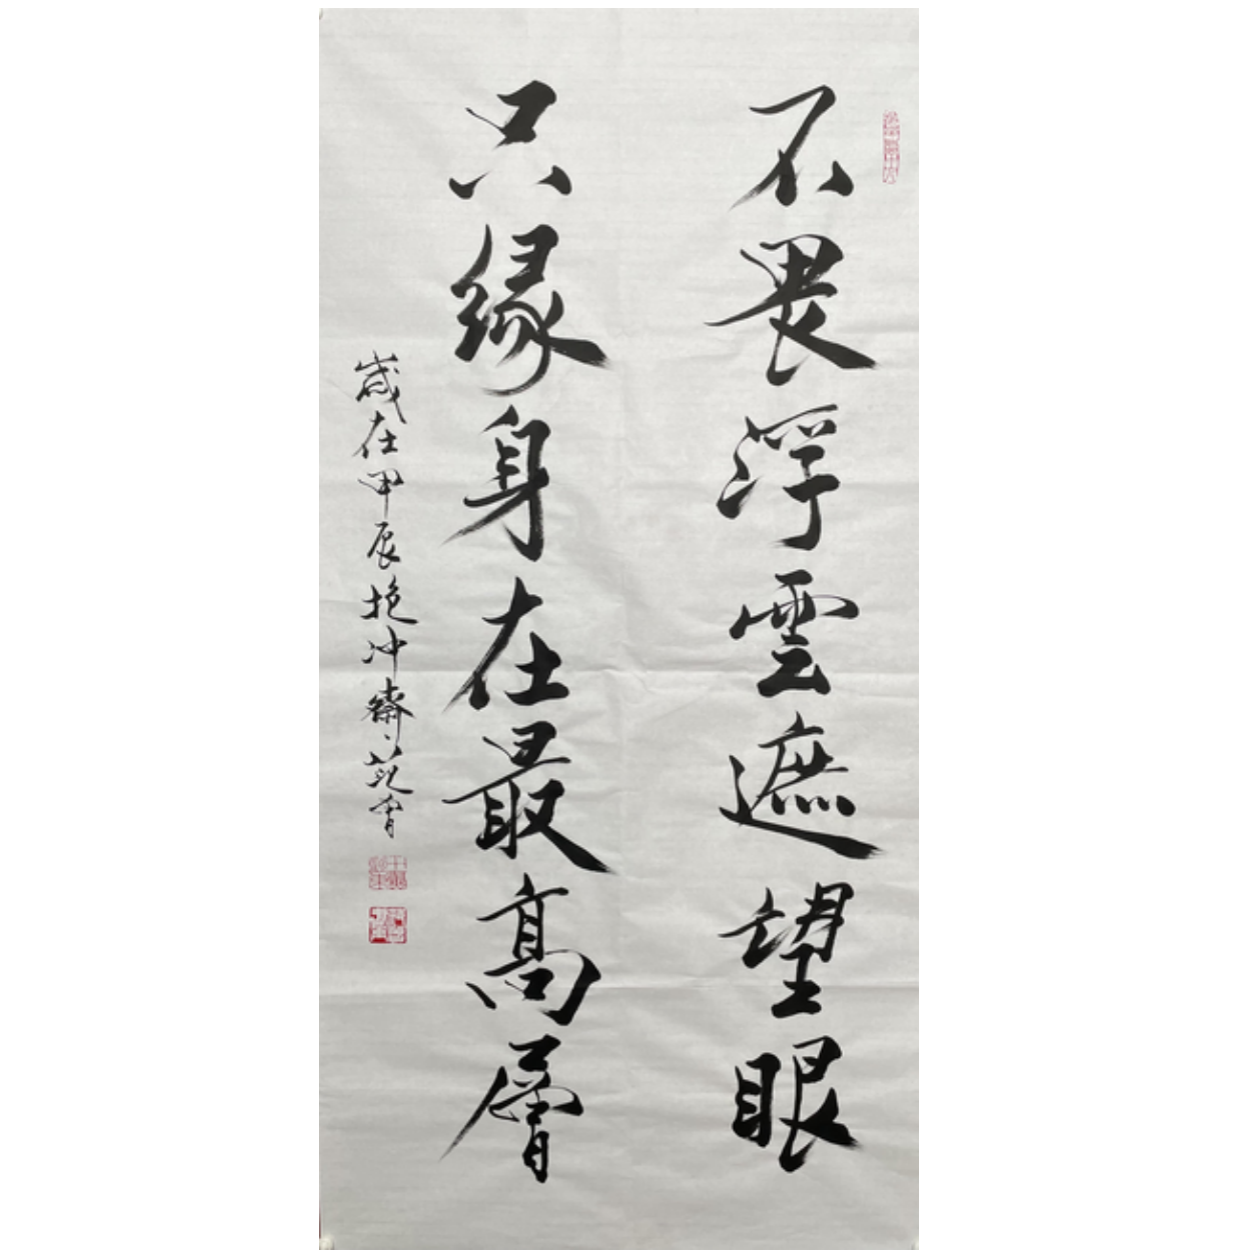 不畏浮雲遮望眼
只緣身在最高層
歲在甲辰抱冲齋范